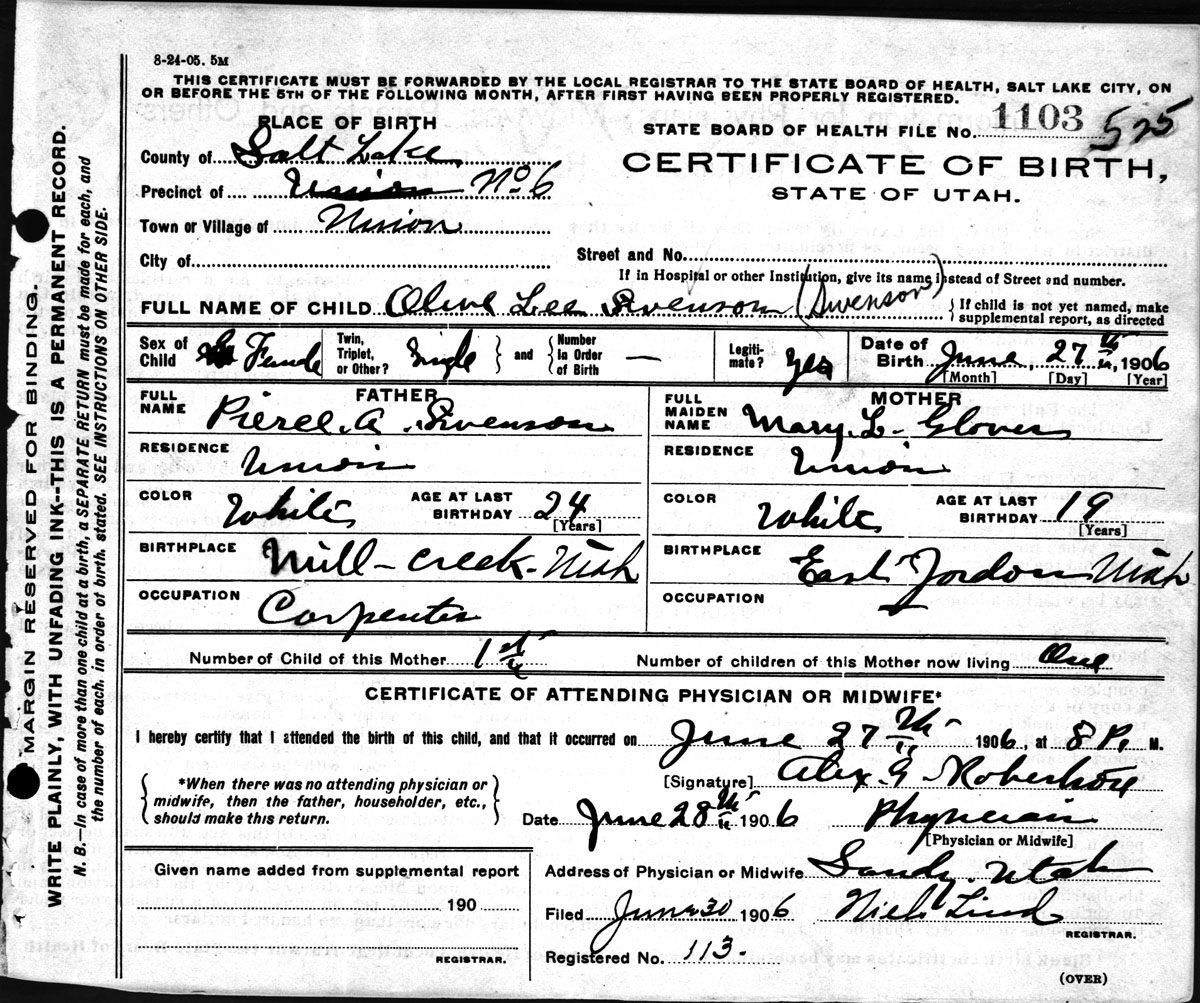 8-24-05. 5M
THIS CERTIFICATE MUST BE FORWARDED BY THE LOCAL REGISTRAR TO THE STATE BOARD OF HEALTH, SALT LAKE CITY, ON
OR BEFORE THE 5TH OF THE FOLLOWING MONTH, AFTER FIRST HAVING BEEN PROPERLY REGISTERED.
PLACE OF BIRTH
STATE BOARD OF HEALTH FILE No. 1103 525
County of Salt Lake
CERTIFICATE OF BIRTH,
Precinct of Union No 6
STATE OF UTAH.
Town or Village of Union
City of
Street and No.
If in Hospital or other Institution, give its name instead of Street and number.
FULL NAME OF CHILD Olive Lee Svenson (Swenson)
{ If child is not yet named, make supplemental report, as directed
Sex of Child Female
Twin, Triplet, or Other? Single } and { Number In Order of Birth —
Legitimate? Yes
Date of Birth June, 27th, 1906
[Month] [Day] [Year]
FATHER
FULL NAME Pierce. A. Svenson
RESIDENCE Union
COLOR White AGE AT LAST BIRTHDAY 24
[Years]
BIRTHPLACE Mill-creek-Utah
OCCUPATION Carpenter
MOTHER
FULL MAIDEN NAME Mary. L- Glover
RESIDENCE Union
COLOR White AGE AT LAST BIRTHDAY 19
[Years]
BIRTHPLACE East Jordon Utah
OCCUPATION —
Number of Child of this Mother 1st
Number of children of this Mother now living One
CERTIFICATE OF ATTENDING PHYSICIAN OR MIDWIFE*
I hereby certify that I attended the birth of this child, and that it occurred on June 27th 1906, at 8 P. M.
{ *When there was no attending physician or midwife, then the father, householder, etc., should make this return. }
[Signature] Alex G- Robertson
Date June 28th 1906 Physician
[Physician or Midwife]
Given name added from supplemental report
190
REGISTRAR.
Address of Physician or Midwife Sandy. Utah
Filed June 30 1906 Niels Lind
REGISTRAR.
Registered No. 113.
(OVER)
MARGIN RESERVED FOR BINDING.
WRITE PLAINLY, WITH UNFADING INK--THIS IS A PERMANENT RECORD.
N. B.—In case of more than one child at a birth, a SEPARATE RETURN must be made for each, and
the number of each. in order of birth. stated. SEE INSTRUCTIONS ON OTHER SIDE.